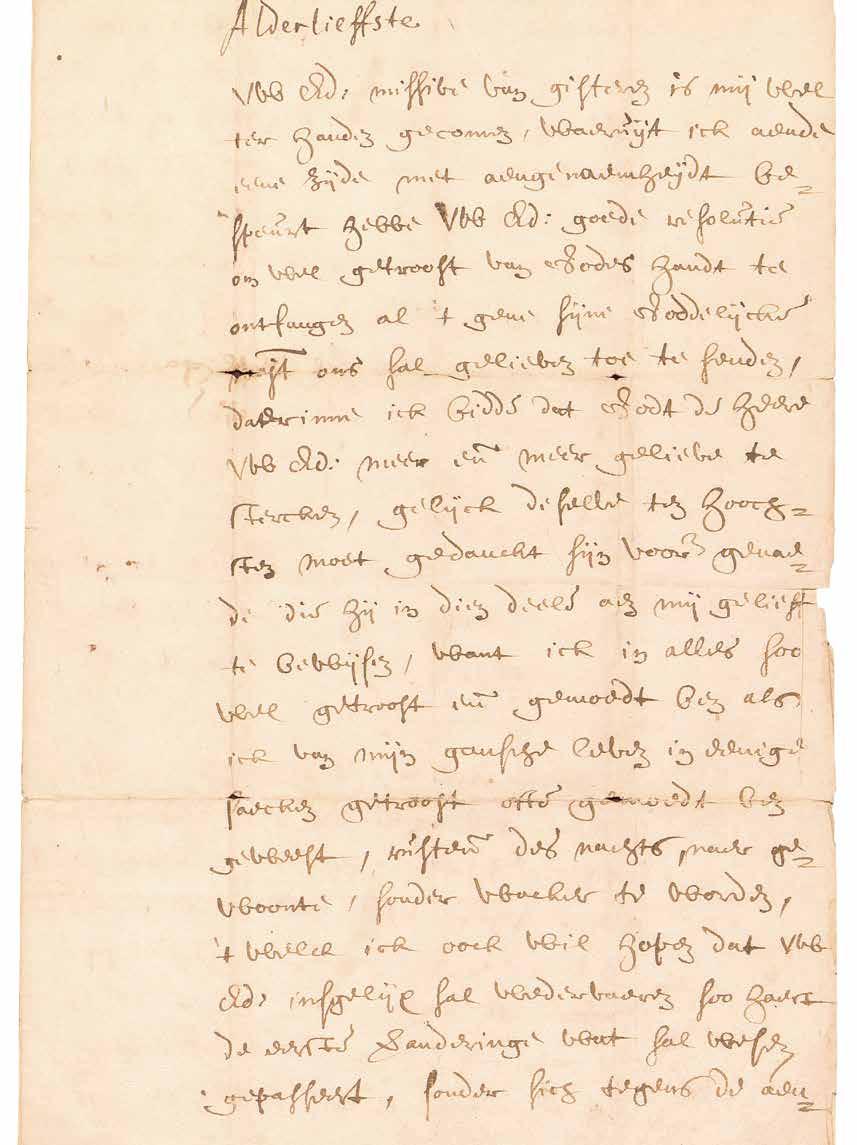 Alderlieffste
Uw Ed: missive van gisteren is mij wel
ter handen gecomen, waeruÿt ick aende
eene zijde met aengenaemheÿdt be=
speurt hebbe Uw Ed: goede resolutie
om wel getroost van Godes handt te
ontfangen al 't gene sijne Goddelijcke
ons sal gelieven toe te senden,
daerinne ick bidde dat Godt de Heere
Uw Ed: meer en̄ meer gelieve te
stercken, gelijck deselve ten hooch=
sten moet gedanckt sijn voor genae=
de die hij in dien deele aen mij gelieft
te bewijsen, want ick in alles soo
wel getroost en̄ gemoedt ben als
ick van mijn gansche leven in eenige
saecken getroost ofte gemoedt ben
geweest, rusten̄ des nachts naer ge=
woonte, sonder wacker te worden,
't welck ick oock wil hopen dat Uw
Ed: insgelijx sal wedervaeren soo haest
de eerste wat sal wesen
gepasseert, sonder sich tegens de aen=